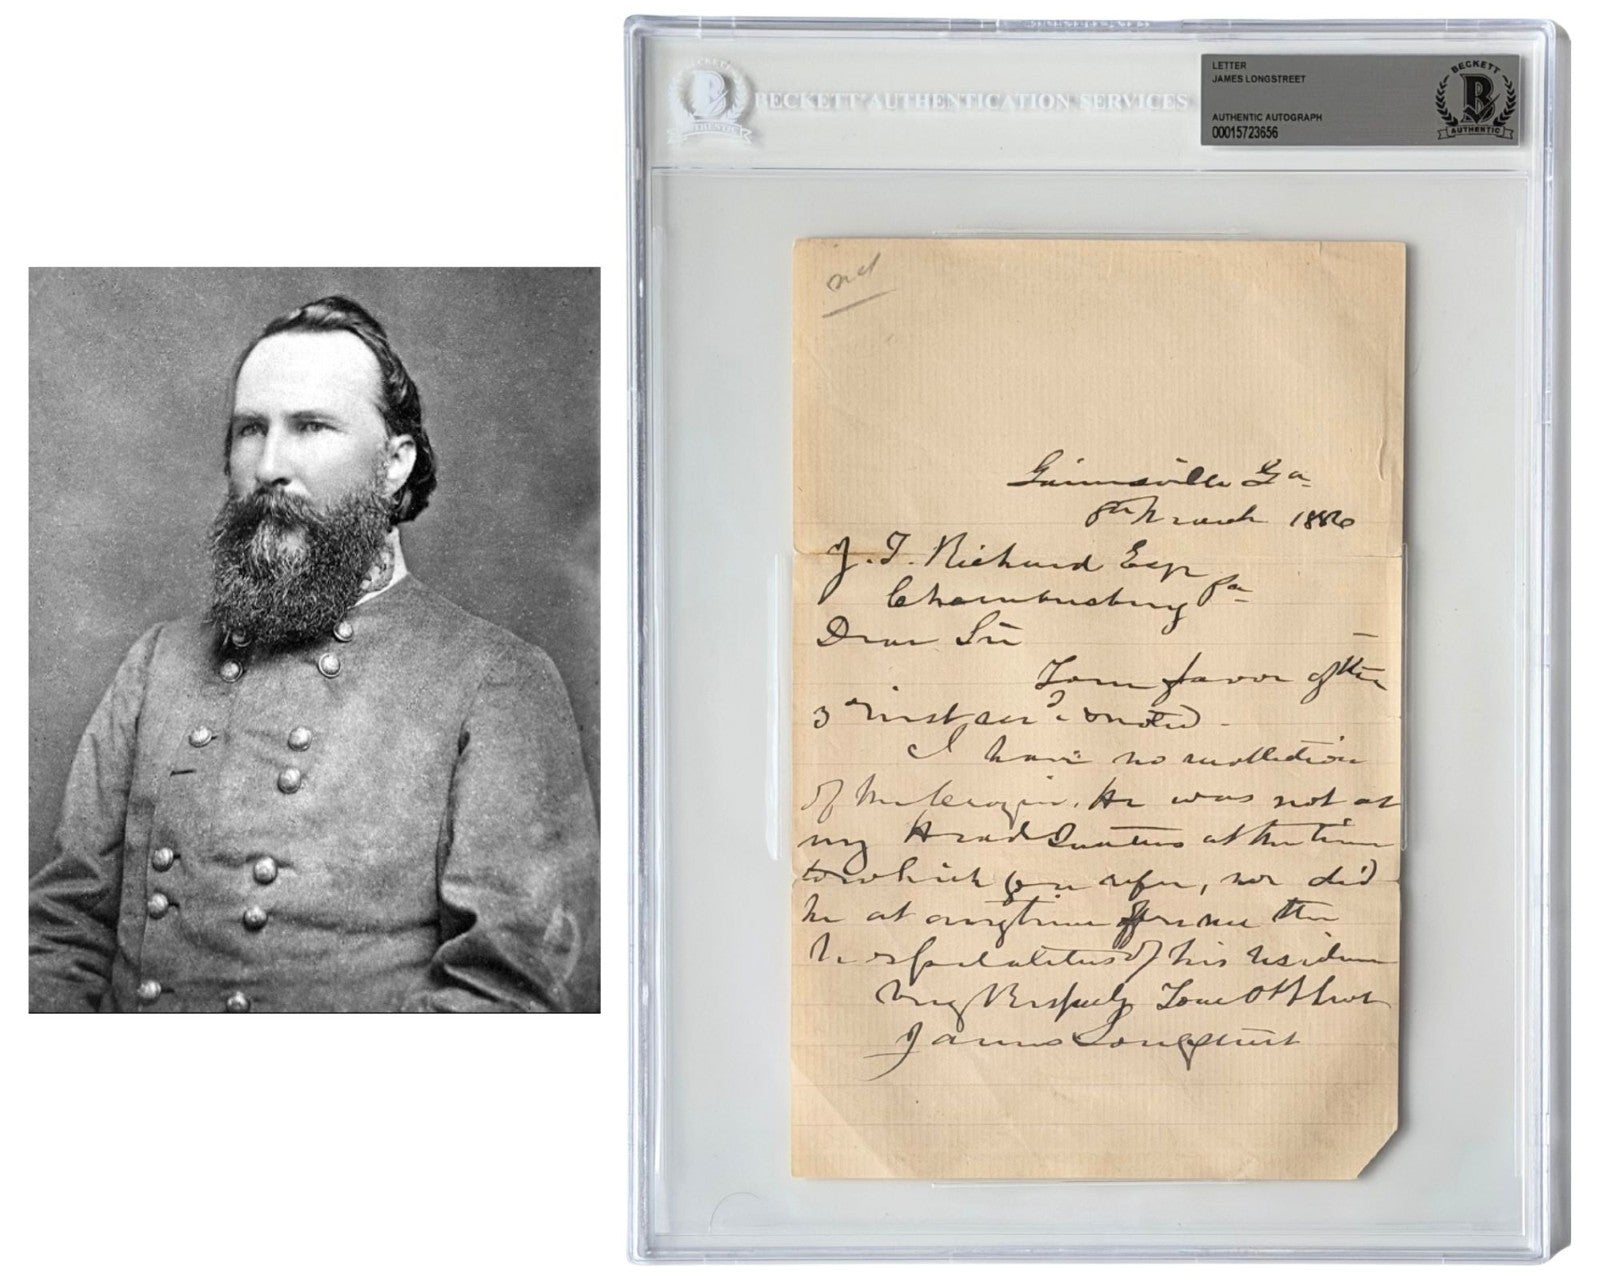 BECKETT
AUTHENTIC
BECKETT AUTHENTICATION SERVICES
LETTER
JAMES LONGSTREET
AUTHENTIC AUTOGRAPH
00015723656
BECKETT
B
AUTHENTIC
Gainesville Ga
8th March 1886
J. F. Richard Esqr
Chambersburg Pa
Dear Sir
Your favor of the
3rd inst rec'd & noted.
I have no recollection
of He was not at
my Head Quarters at the time
to which you refer, nor did
he at anytime offer me the
hospitalities of his residence
Very Respectfuly Your Obt Servt
James Longstreet